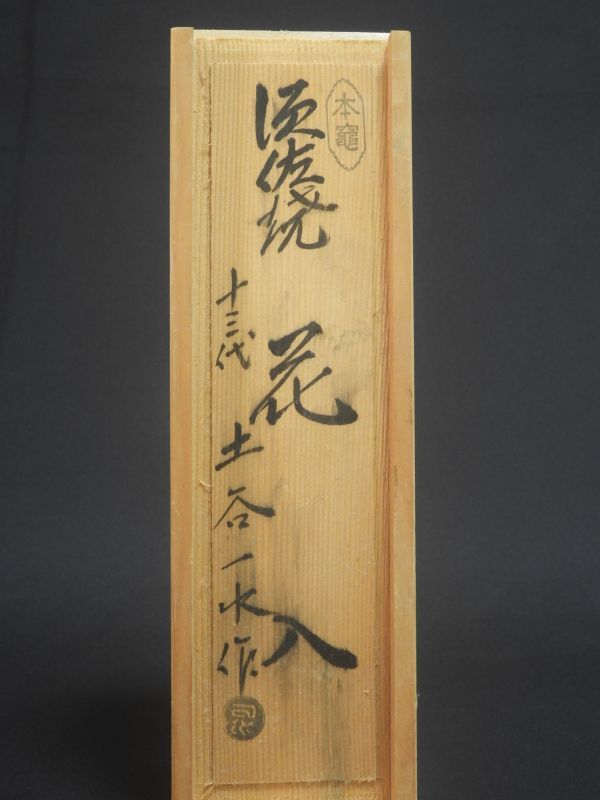 本窯
須佐焼 花入
十三代 土谷一水作